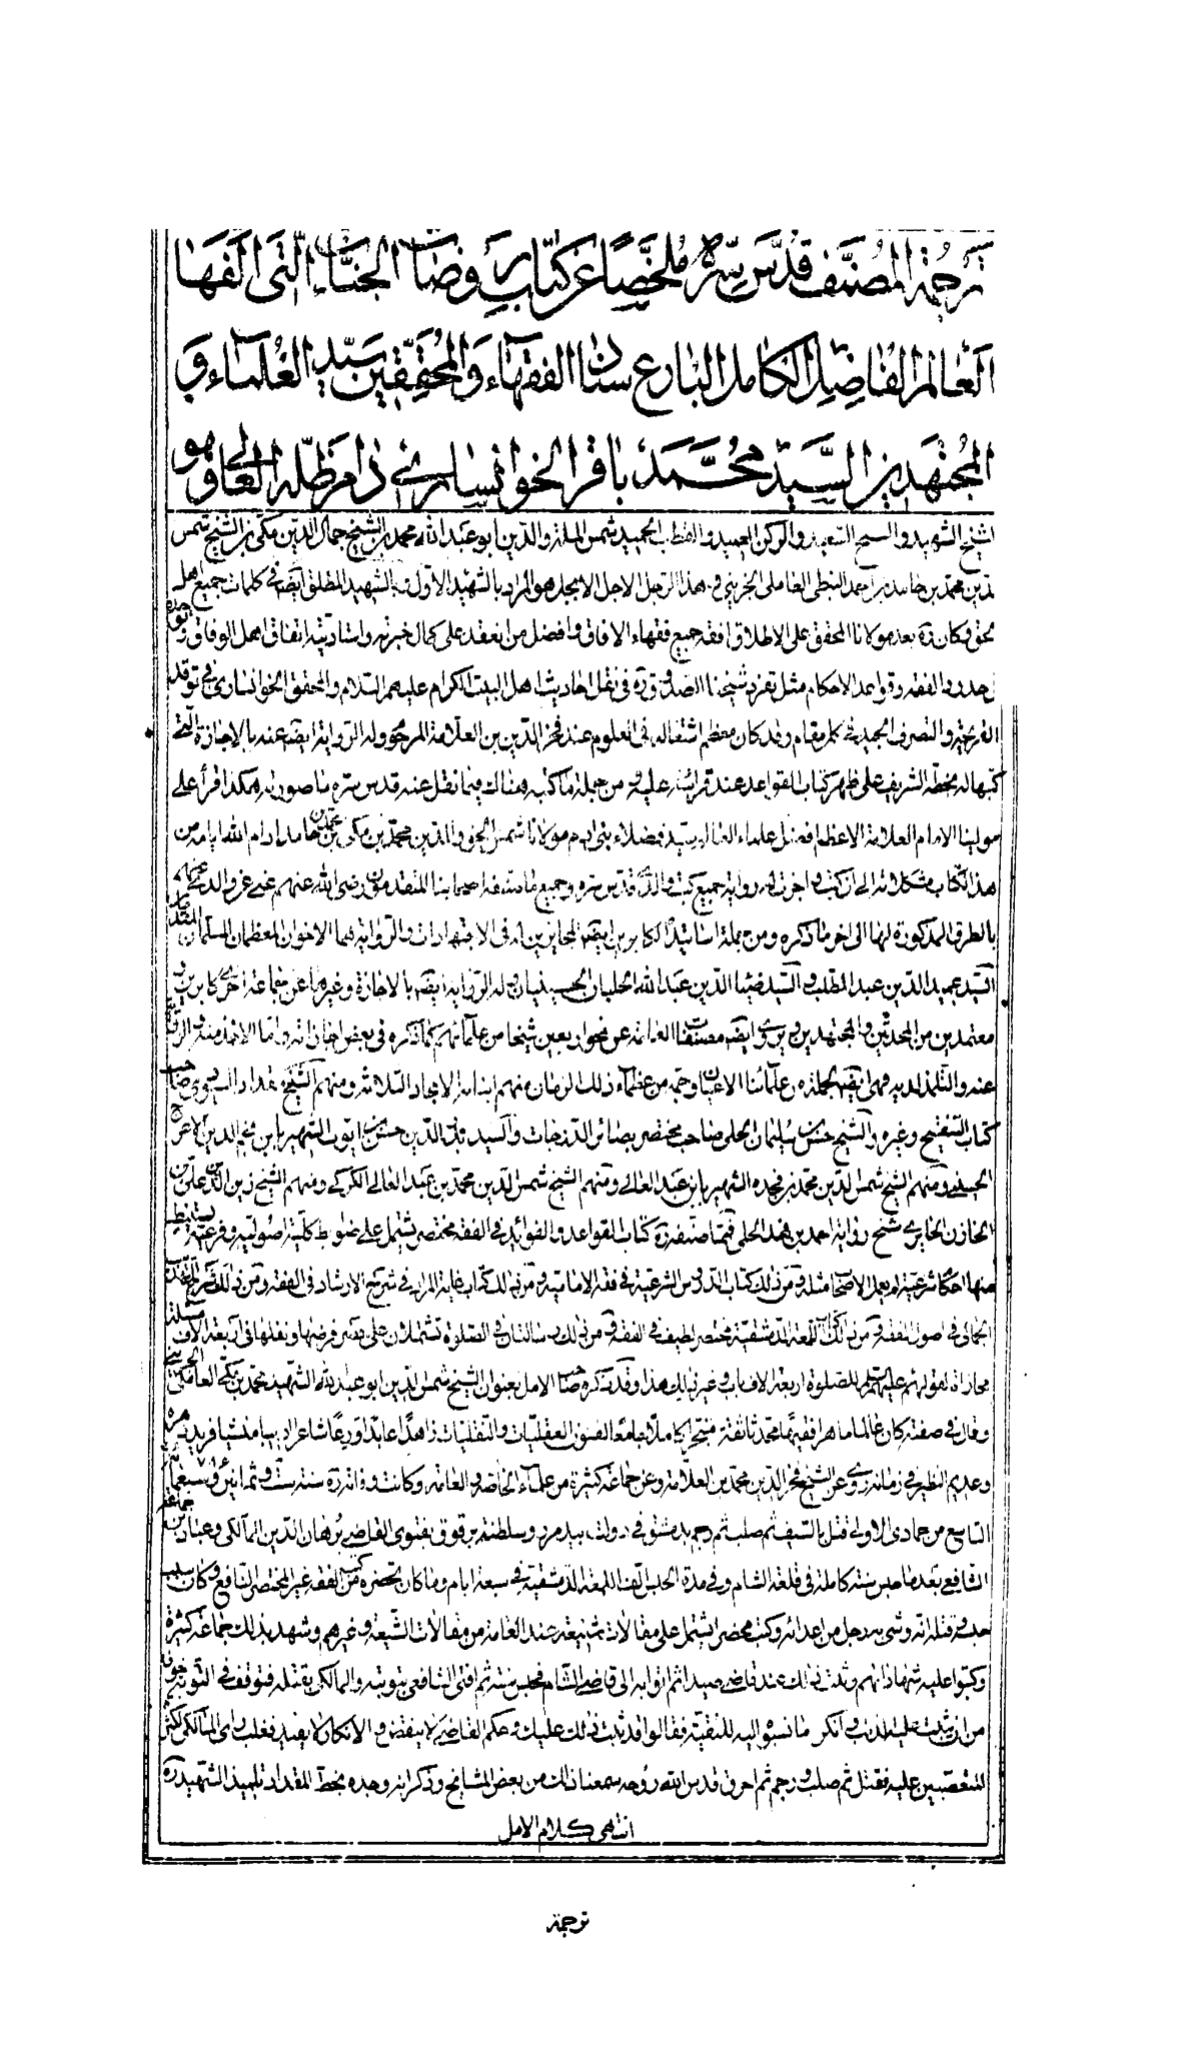 ترجمة المصنف قدس سره ملخصا عن كتاب روضات الجنات التي الفها
العالم الفاضل الكامل البارع سنان الفقهاء والمحققين سيد العلماء و
المجتهدين السيد محمد باقر الخوانساري دام ظله العالي وهو
الشيخ الشهيد و السعيد والركن العميد والقطب الحميد شمس الملة والدين ابو عبد الله محمد بن الشيخ جمال الدين مكي بن الشيخ شمس
الدين محمد بن حامد بن احمد النبطي العاملي الجزيني هذا الرجل الاجل الابجد هو المراد بالشهيد الاول وبالشهيد المطلق ايضا في كلمات جميع اهل
الحق وكان ره بعد مولانا المحقق على الاطلاق افقه جميع فقهاء الافاق وافضل من انعقد على كمال خبرته واستاديته اتفاق اهل الوفاق
حدود الفقه وقواعد الاحكام مثل تفرد شيخنا الصدوق ره في نقل احاديث اهل البيت الكرام عليهم السلام والمحقق الخوانساري في توقد
القريحة والتصرف الجيد في كل مقام وقد كان معظم اشتغاله في العلوم عند فخر الدين بن العلامة المرحوم وله الرواية ايضا عنه بالاجازة التي
كتبها له بخطه الشريف على ظهر كتاب القواعد عند قرائته عليه ومن جملة ما كتبه هناك فيما نقل عنه قدس سره ما صورته هكذا قرأ على
مولينا الامام العلامة الاعظم افضل علماء العالم سيد فضلاء بني ادم مولانا شمس الحق والدين محمد بن مكي بن محمد بن حامد ادام الله ايامه من
هذا الكتاب مشكلاته الى ان كتب واجزت له رواية جميع كتب والدي قدس سره وجميع ما صنفه اصحابنا المتقدمون رضي الله عنهم عني عن والدي عنهم
بالطرق المذكورة لها الى اخر ما ذكره ومن جملة اساتيده الكابرين ايضا المجايزين له في الاجتهادات والرواية هما الاخوان المعظمان المسلمان
السيد عميد الدين عبد المطلب والسيد ضياء الدين عبد الله الحليان الحسينيان وله الرواية ايضا بالاجازة وغيرها عن جماعة اخرى كابرين و
معتمدين من المحدثين والمجتهدين ويروي ايضا مصنفات العامة عن نحو اربعين شيخا من علمائهم كما ذكره في بعض اجازاته واما الاخذ منه والرواية
عنه والتلمذ لديه فهما ايضا لجملة من علمائنا الاعيان وجمة من عظماء ذلك الزمان منهم ابنائه الامجاد الثلاثة ومنهم الشيخ مقداد السيوري صاحب
كتاب التنقيح وغيره والشيخ حسن بن سليمان الحلي صاحب مختصر بصائر الدرجات والسيد بدر الدين حسن بن ايوب الشهير بابن نجم الدين الاعرج
الحسيني ومنهم الشيخ شمس الدين محمد بن نجده الشهير بابن عبد العالي ومنهم الشيخ شمس الدين محمد بن عبد العالي الكركي ومنهم الشيخ زين الدين علي بن
الخازن الحايري شيخ رواية احمد بن فهد الحلي فمما صنفه ره كتاب القواعد والفوائد في الفقه مختصر يشتمل على ضوابط كلية اصولية وفرعية يستنبط
منها احكام شرعية لم يعمل الاصحاب مثله ومن ذلك كتاب الدروس الشرعية في فقه الامامية ومن ذلك كتاب غاية المراد في شرح الارشاد في الفقه ومن ذلك شرح التهذيب
الجمالي في اصول الفقه ومن ذلك كتاب اللمعة الدمشقية مختصر لطيف في الفقه ومن ذلك رسالتان في الصلوة تشتملان على حصر فرضها ونفلها في اربعة الاف مسئلة
محاذاة لقولهم عليهم السلام للصلوة اربعة الاف باب وغير ذلك هذا وقد ذكره صاحب الامل بعنوان الشيخ شمس الدين ابو عبد الله الشهيد محمد بن مكي العاملي الجزيني
وقال في صفته كان عالما ماهرا فقيها محدثا ثقة متبحرا كاملا جامعا لفنون العقليات والنقليات زاهدا عابدا ورعا شاعرا اديبا منشيا فريد دهره
وعديم النظير في زمانه روى عن الشيخ فخر الدين محمد بن العلامة وعن جماعة كثيرة من علماء الخاصة والعامة وكانت وفاته ره سنة ست وثمانين وسبعمائة
التاسع من جمادى الاولى قتل بالسيف ثم صلب ثم رجم بدمشق في دولة بيدمر وسلطنة برقوق بفتوى القاضي برهان الدين المالكي وعباد بن جماعة
الشافعي بعد ما حبس سنة كاملة في قلعة الشام وفي مدة الحبس الف اللمعة الدمشقية في سبعة ايام وما كان يحضره من كتب الفقه غير المختصر النافع وكان سبب
حبسه وقتله انه وشى به رجل من اعدائه وكتب محضرا يشتمل على مقالات شنيعة عند العامة من مقالات الشيعة وغيرهم وشهد بذلك جماعة كثيرة
وكتبوا عليه شهاداتهم وثبت ذلك عند قاضي صيدا ثم اتوا به الى قاضي الشام فحبس سنة ثم افتى الشافعي بتوبته والمالكي بقتله فتوقف في التوبة خوفا
من ان يثبت عليه الذنب وانكر ما نسبوه اليه للتقية فقالوا قد ثبت ذلك عليك وحكم القاضي لا ينقض والانكار لا يفيد فغلب رأى المالكي لكثرة
المتعصبين عليه فقتل ثم صلب ورجم ثم احرق قدس الله روحه سمعنا ذلك من بعض المشايخ وذكر انه وجده بخط المقداد تلميذ الشهيد ره
انتهى كلام الامل
ترجمة